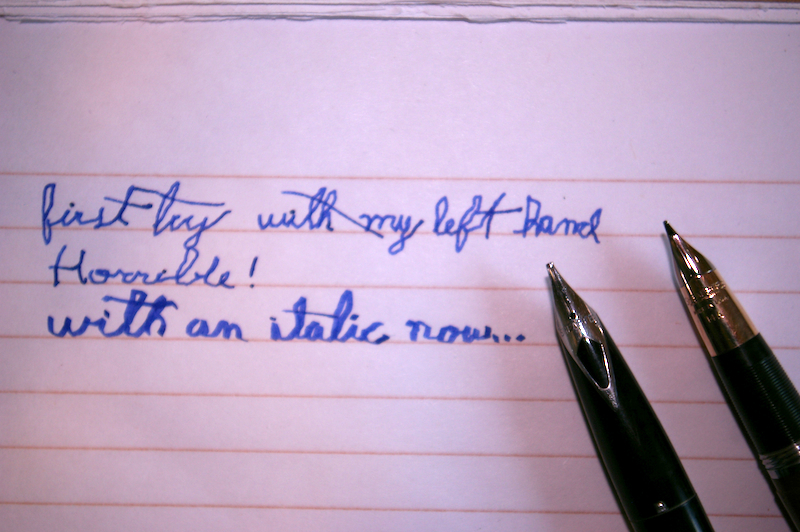 first try with my left hand
Horrible!
with an italic now...